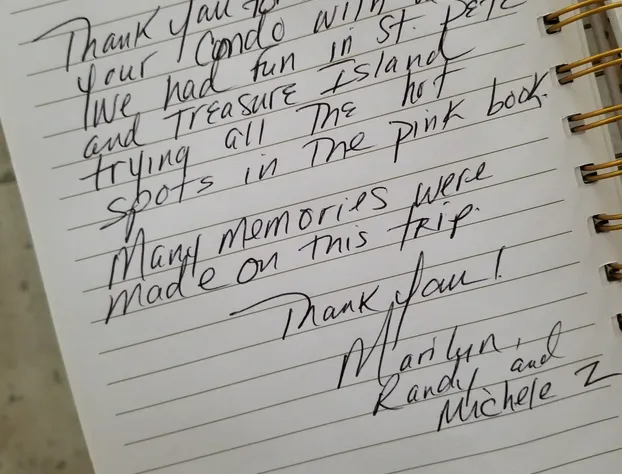 Thank you for
your condo with
We had fun in St. Pete
and Treasure Island
trying all the hot
spots in the pink book.
Many memories were
made on this trip.
Thank you!
Marilyn,
Randy and
Michele Z